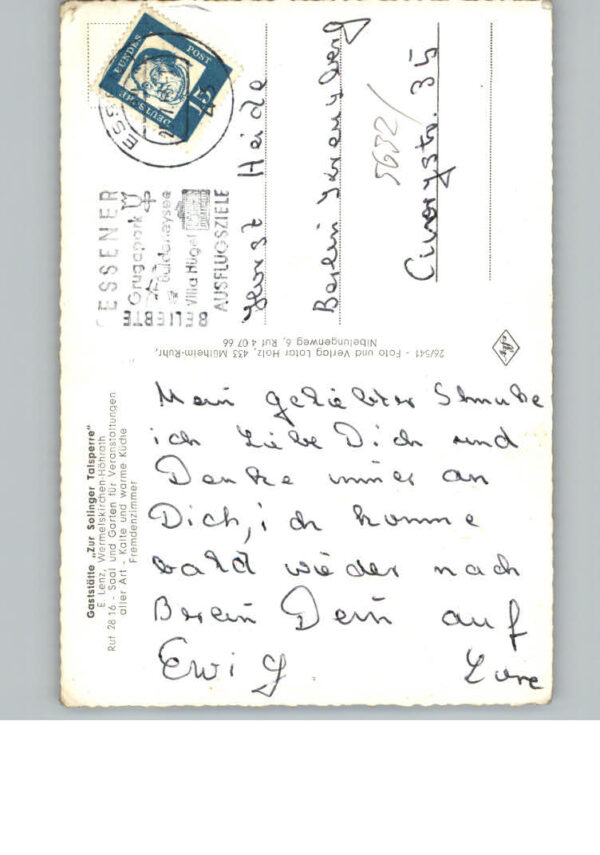 DEUTSCHE BUNDESPOST
15
ESSENER
Grugapark
Baldeneysee
Villa Hügel
BELIEBTE
AUSFLUGSZIELE
Horst Heide
Berlin Kreuzberg
5632/
Cuvrystr. 35
26/541 - Foto und Verlag Lotar Holz, 433 Mülheim-Ruhr,
Nibelungenweg 6, Ruf 4 07 66
Gaststätte „Zur Solinger Talsperre"
E. Lenz, Wermelskirchen-Höhrath
Ruf 28 16 - Saal und Garten für Veranstaltungen
aller Art - Kalte und warme Küche
Fremdenzimmer
Mein geliebter Schnuke
ich Liebe Dich und
Denke immer an
Dich, ich komme
bald wieder nach
Berlin Dein auf
Ewig Lore